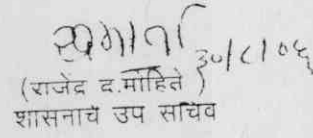 ३०/८/०६
(राजेंद्र द.मोहिते )
शासनाचे उप सचिव